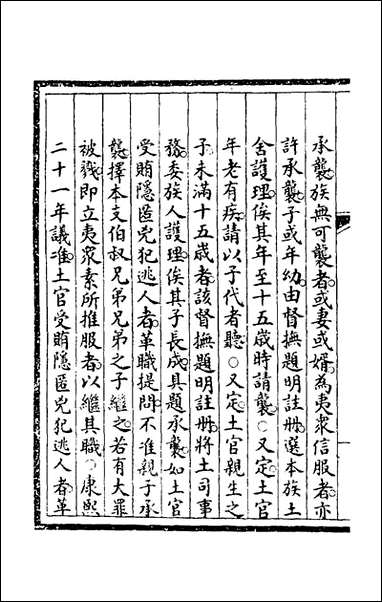 承襲族無可襲者或妻或婿為夷衆信服者亦
許承襲子或年幼由督撫題明註冊選本族土
舍護理俟其年至十五歲時請襲○又定土官
年老有疾請以子代者聽○又定土官親生之
子未滿十五歲者該督撫題明註冊將土司事
務委族人護理俟其子長成具題承襲如土官
受賄隱匿兇犯逃人者革職提問不准親子承
襲擇本支伯叔兄弟兄弟之子繼之若有大罪
被戮即立夷衆素所推服者以繼其職○康熙
二十一年議准土官受賄隱匿兇犯逃人者革